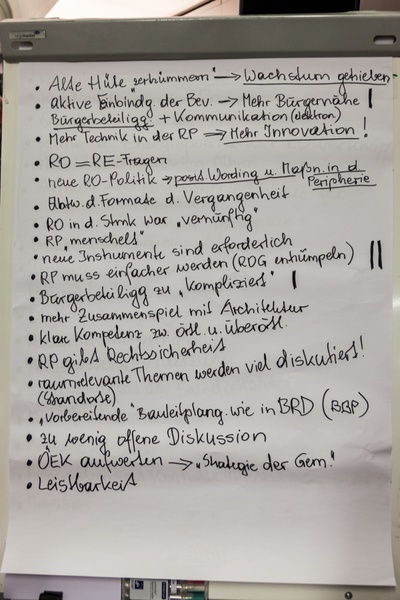 • Alte Hüte „zertrümmern" → Wachstum getrieben
• aktive Einbindg. der Bev. → Mehr Bürgernähe |
Bürgerbeteiligg + Kommunikation (elektron)
• Mehr Technik in der RP ⇒ Mehr Innovation!
• RO = RE-Fragen
• neue RO-Politik → posit. Wording u. Maßn. in d.
Peripherie
• Abkw. d. Formate d. Vergangenheit
• RO in d. Stmk war „vernünftig"
• RP „menschelt"
• neue Instrumente sind erforderlich
• RP muss einfacher werden (ROG entrümpeln) ||
• Bürgerbeteiligg zu „kompliziert" |
• mehr Zusammenspiel mit Architektur
• klare Kompetenz zw. örtl. u. überörtl.
• RP gibt Rechtssicherheit
• raumrelevante Themen werden viel diskutiert!
(Standorte)
• „vorbereitende" Bauleitplang. wie in BRD (BBP)
• zu wenig offene Diskussion
• ÖEK aufwerten → „Strategie der Gem."
• Leistbarkeit